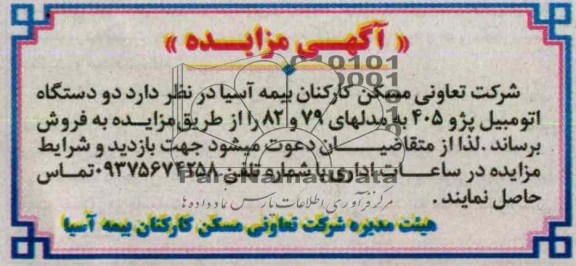 « آگهـی مزایـــده »
شرکت تعاونی مسکن کارکنان بیمه آسیا در نظر دارد دو دستگاه
اتومبیل پژو ۴۰۵ به مدلهای ۷۹ و ۸۲ را از طریق مزایـــده به فروش
برساند .لذا از متقاضیـــــان دعوت میشود جهت بازدید و شرایط
مزایده در ساعـــات اداری با شماره تلفن ۰۹۳۷۵۶۷۴۲۵۸تماس
حاصل نمایند .
هیئت مدیره شرکت تعاونی مسکن کارکنان بیمه آسیا
ParsNamadData
مرکز فرآوری اطلاعات پارس نماد داده ها